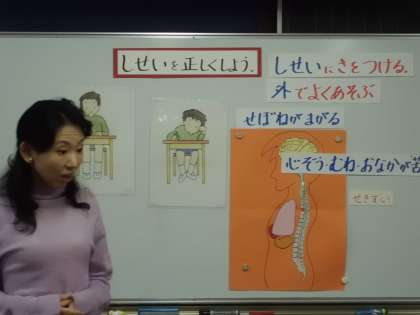 しせいを正しくしよう。
しせいにきをつける。
外でよくあそぶ
せぼねがまがる
心ぞう・むね・おなかが苦
せきずい